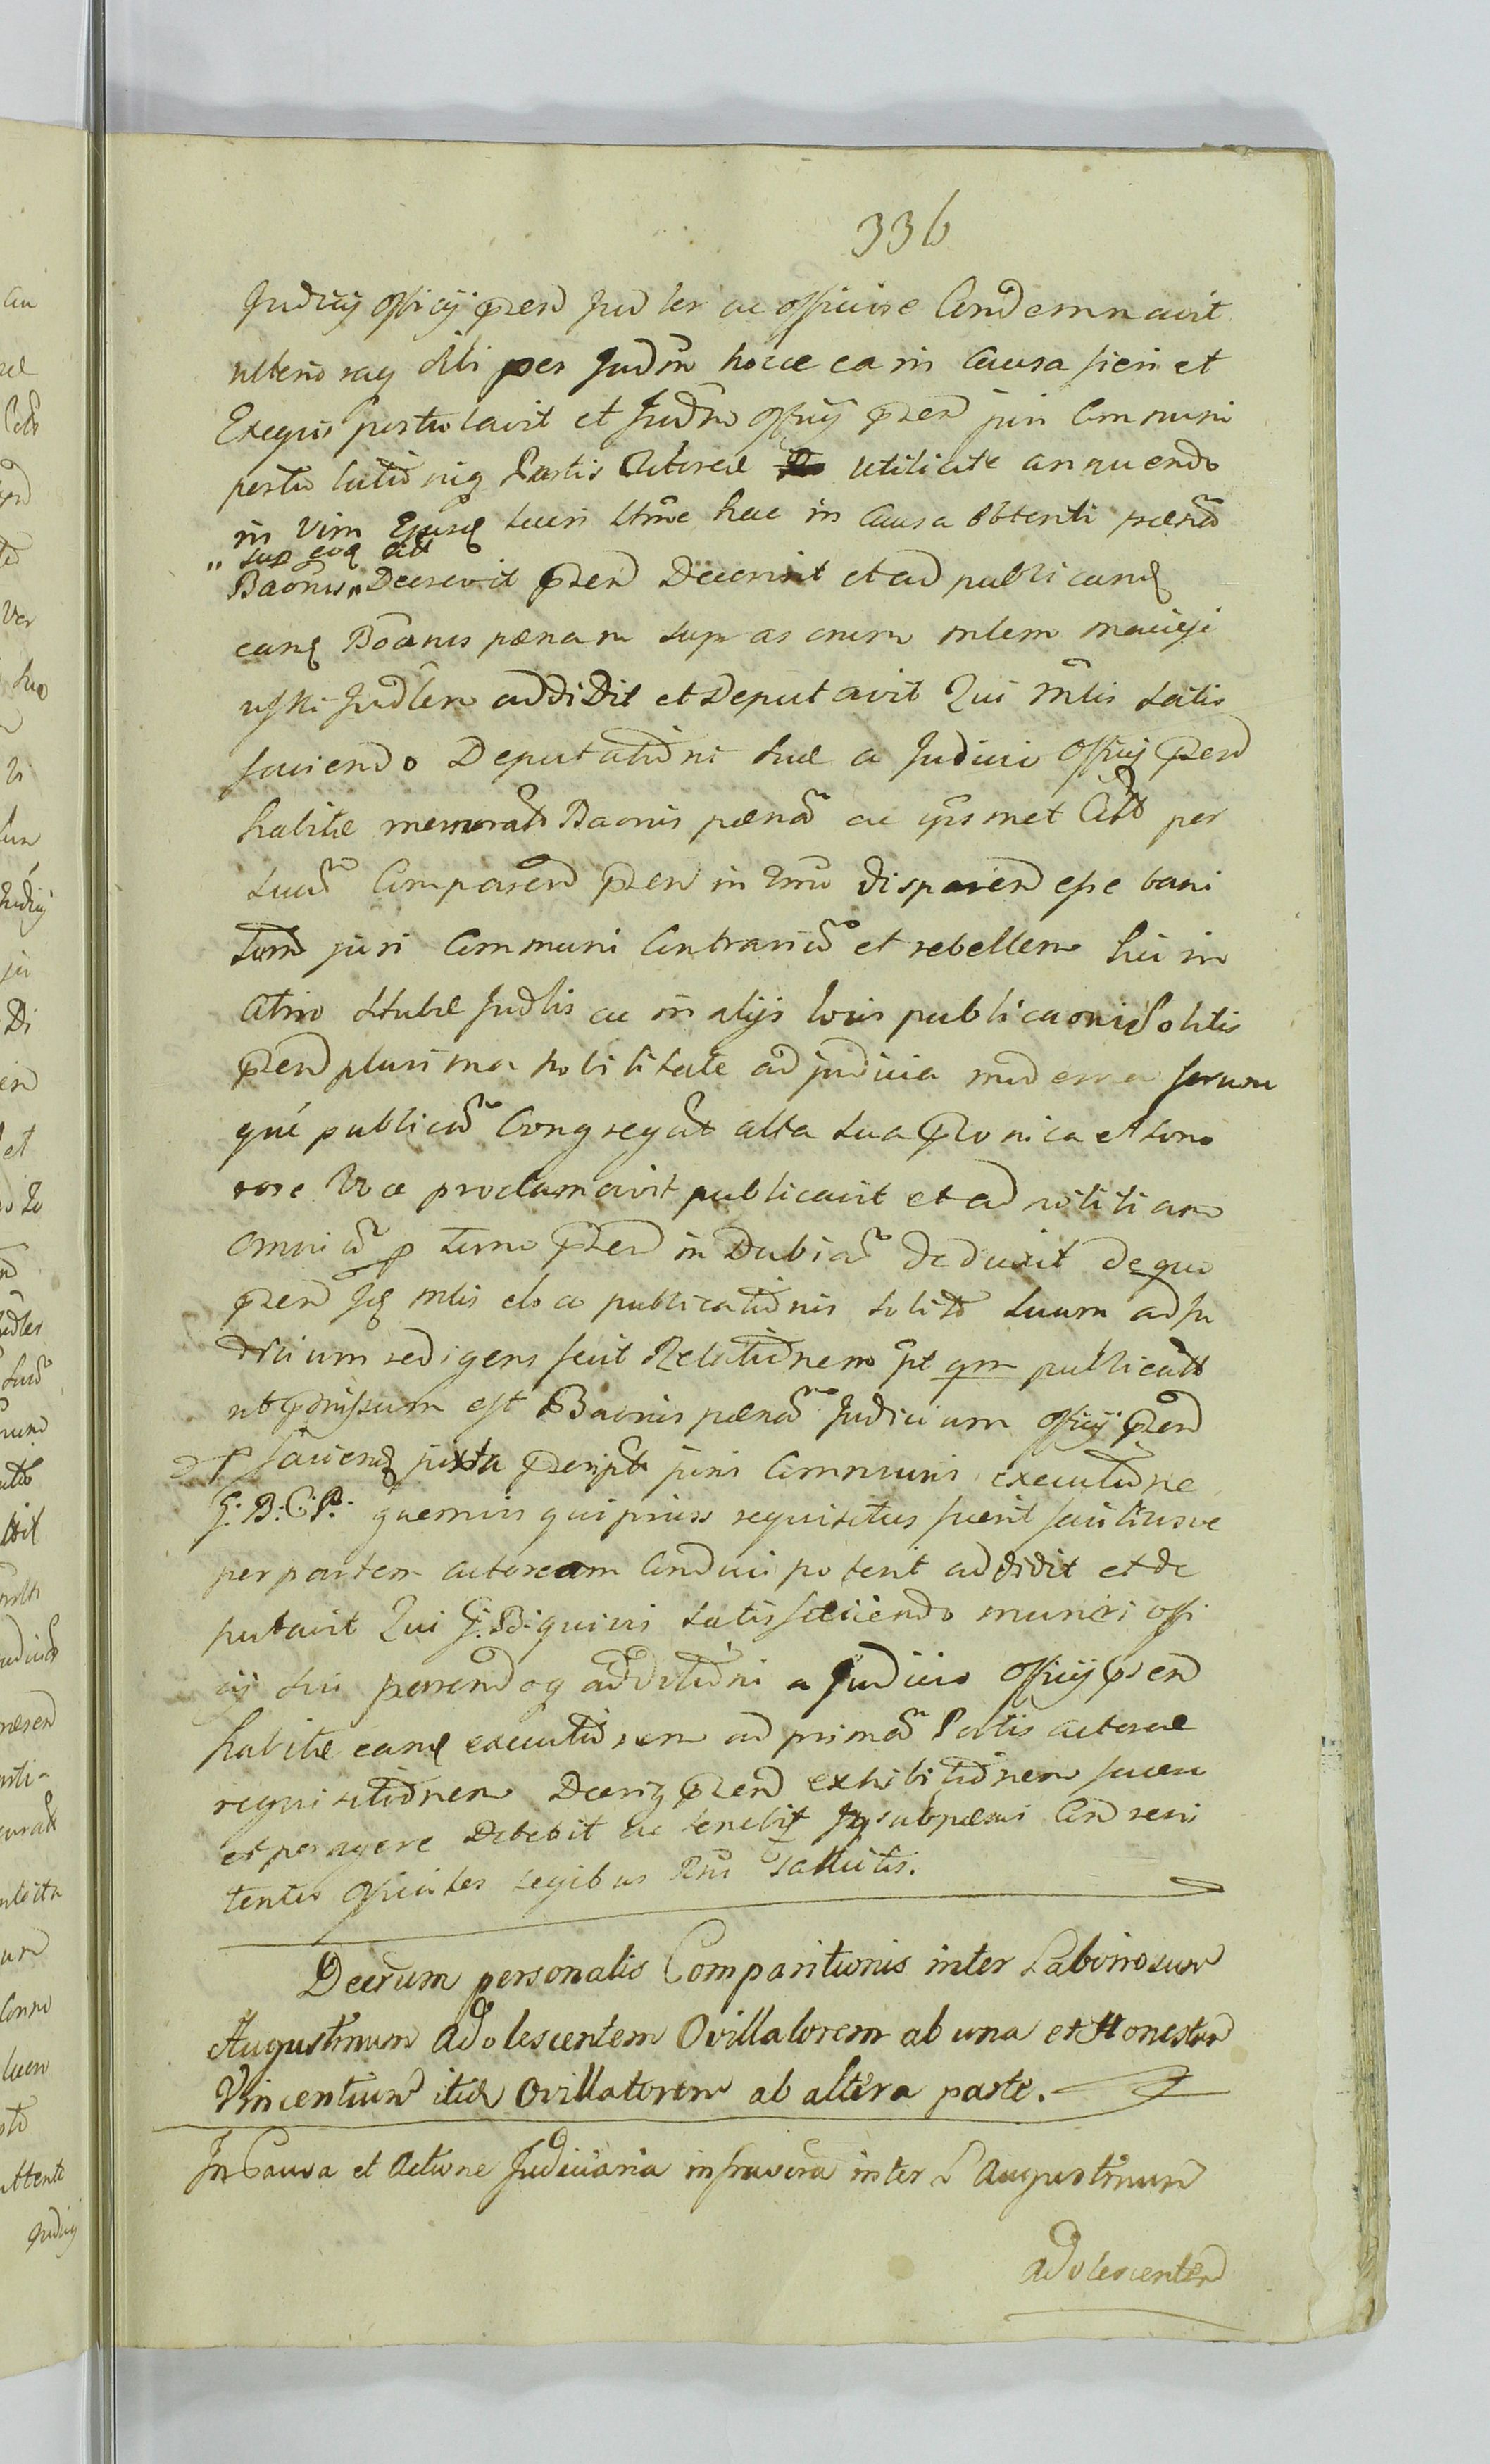 336
Judicij Officij praesen Jud ler ac officiose Condemnavit
ulterio raq sibi per Judm hocce ea in Causa fieri et
Exequi postulavit et Judm Officij praesen juri Communi
postu lationiq Partis Actoreae utilitate annuendo
in vim Ejusq lucri hac in Causa obtenti paenam
" sup eoq act
Baonis " Decrevit praesen Decernit et ad publicanq
eanq Baonis paenam sup as crum mlem
Judlem addidit et Deputavit Qui Mtlis satis
faciendo Deputationi suae a Judicio Officij praesen
habitae memorat Baonis paenam ac ipsmet Citt per
suam Comparen praesen in Tmo disparen esse bani
tum juri Communi Contrarium et rebellem hic in
atrio Stubae Judlis ac in alijs locis publicaonis solitis
praesen plurima nobilitate ad judicia moderna forum
que publicum Congregat alta sua et sono
rose voce proclamavit publicavit et ad notitiam
omnium p Tmo praesen in Dubiam deduxit de quo
praesen Jq Mlis eloa publicationis solito suum ad Ju
dicium redigens fecit Relationem pt qm publicatt
ut pmissum est Baonis paenam Judicium Officij praesen
p facienq juxta praescript juris Communis executione
G. B. C. P. quemvis qui prius requisitus fuerit facilius ve
per partem actoream Conduci poterit addidit et de
putavit Qui G. B. quivis satisfaciendo muneri offi
cij sui parendoq additioni a Judicio Officij praesen
habitae eanq executionem ad primam Partis actoreae
requisitionem Decrij praesen exhibitionem facere
et peragere Debebit ac tenebit sub paenis Con reni
tentes Officiales legibus Rni Sancitis.
Decrum personalis Comparitionis inter Laboriosum
Augustinum Adolescentem Ovillatorem ab una et Honestum
Vincentium itid Ovillatorem ab altera parte.
In Causa et Actione Judiciaria infrascra inter L Augustinum
Adolescentem